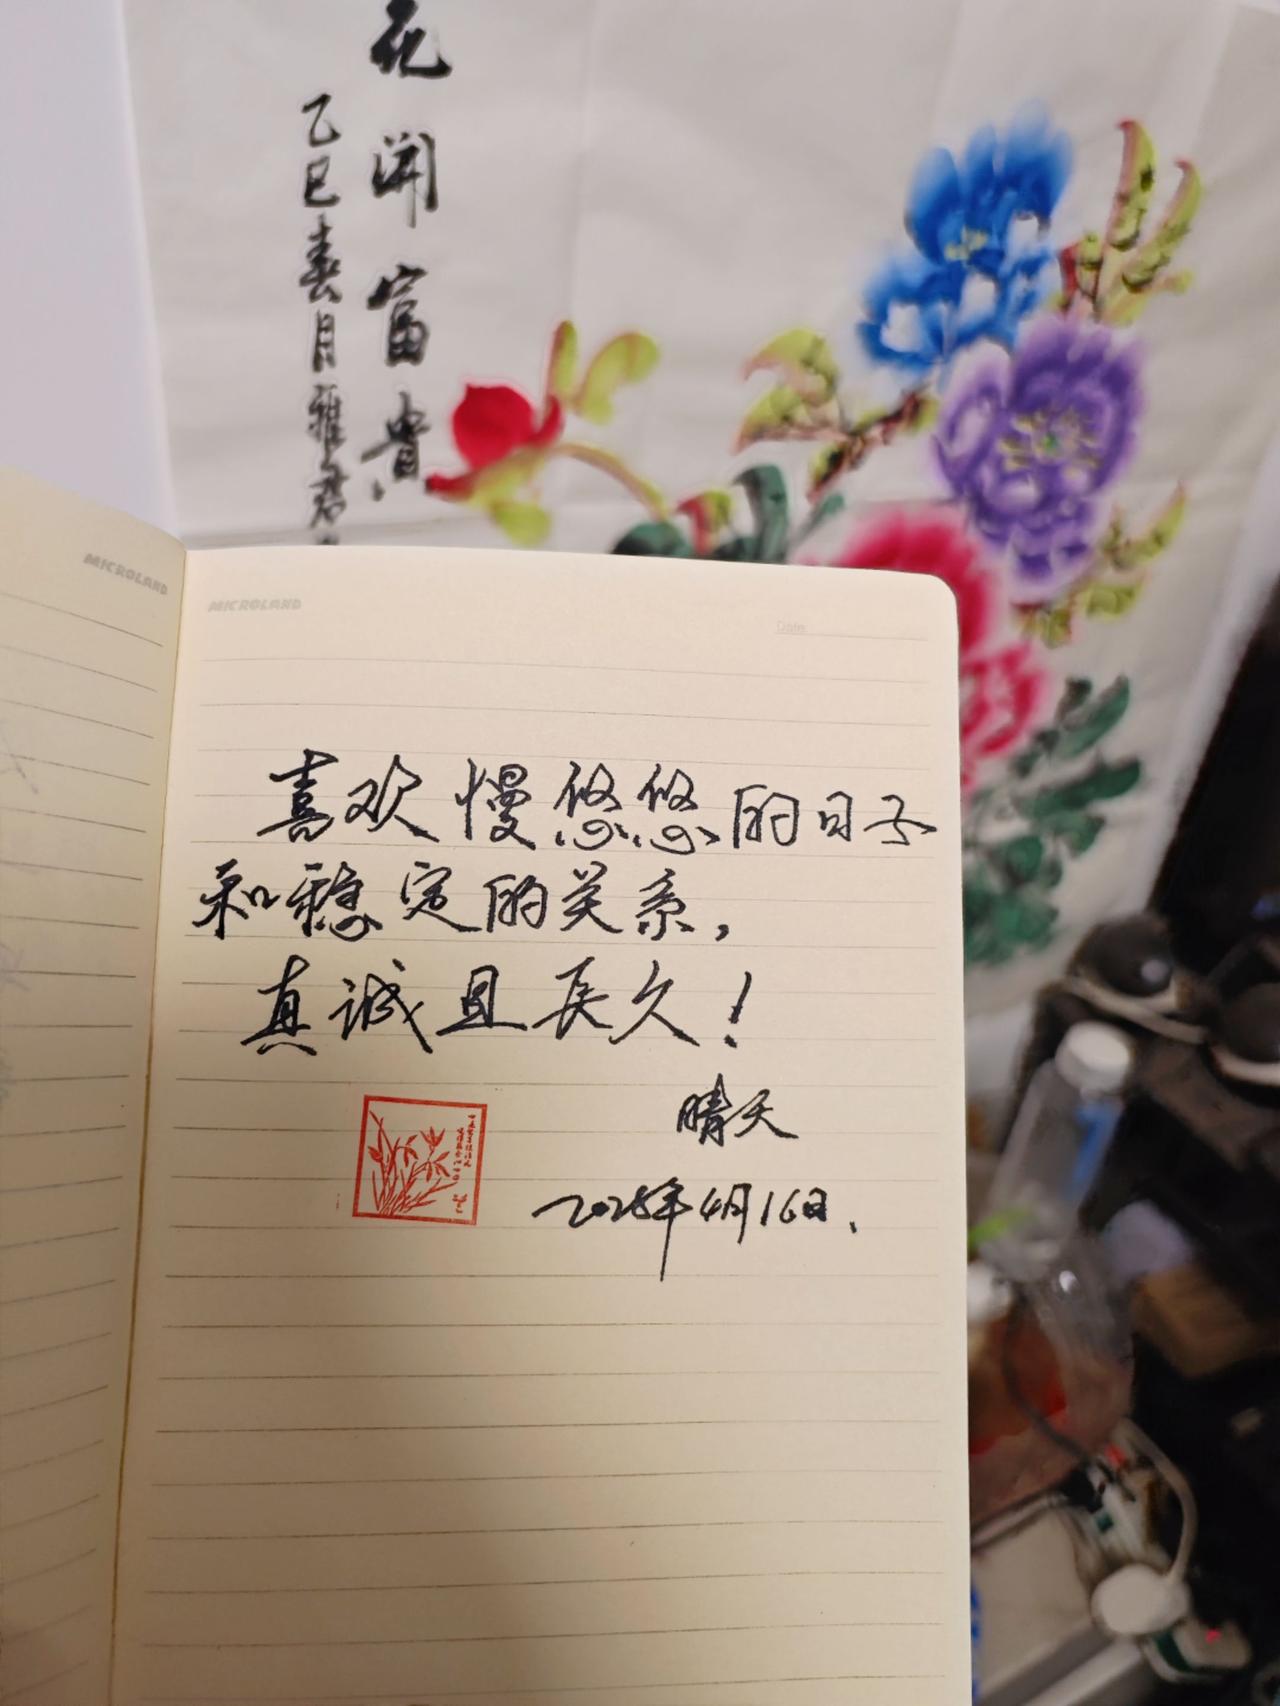 花開富貴
乙巳春月雅君
MICROLAND
MICROLAND
Date
喜欢慢悠悠的日子
和稳定的关系,
真诚且长久!
晴天
2025年4月16日.